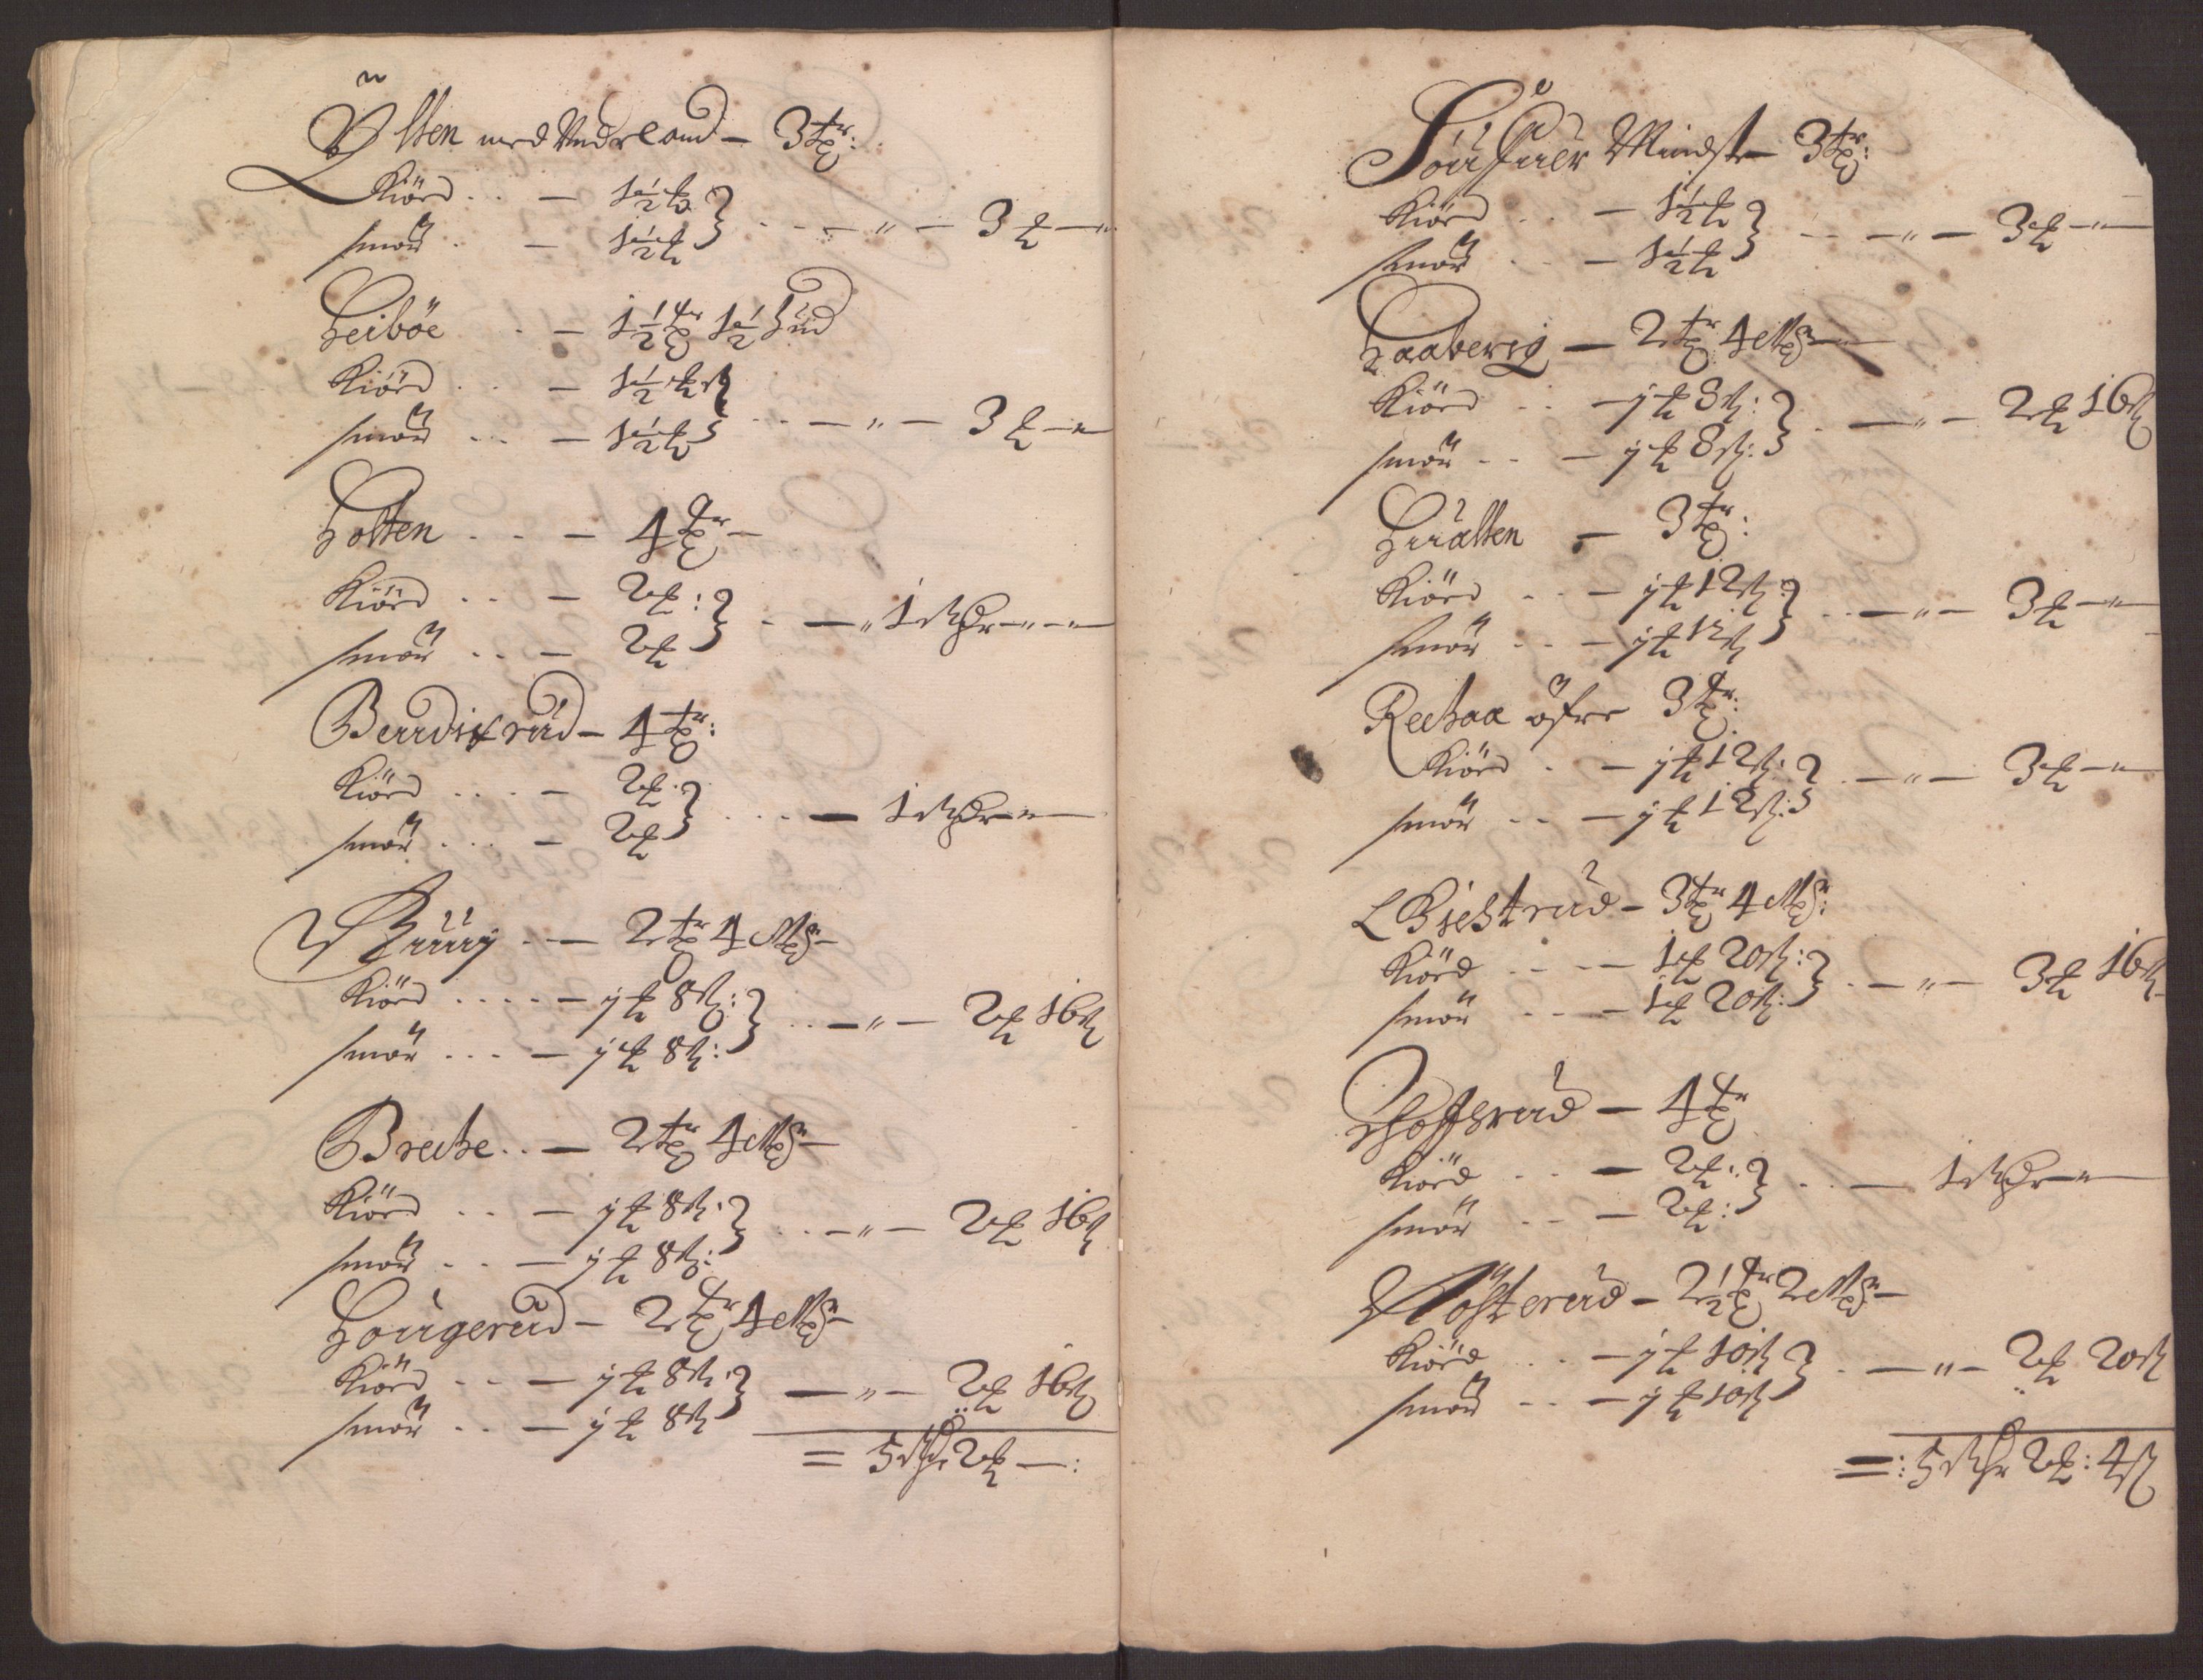 Ølsten med Underland - 3 tr:
Kiörd . . - 1½ t
smör . - 1½ t } . . - " - 3 t - "
Leiböe . - 1½ tr 1½ hud
Kiörd . . - 1½ t
smör . . - 1½ t } . . - " - 3 t - "
Holten . . - 4 tr -
Kiörd . . - 2 t:
smör . . - 2 t } . - " 1 Rdr - " - "
Beurdixrud - 4 tr:
Kiörd . . . - 2 t:
smör . . . - 2 t } . . . - 1 Rdr - "
- 2 tr 4 Mrk -
Kiörd . . . . - j t 8 s:
smör . . . - j t 8 s: } . . - " - 2 t 16 s
Breche . . - 2 tr 4 Mrk -
Kiörd . . - j t 8 s:
smör . . - j t 8 s: } . . - " - 2 t 16 s
Hougerud - 2 tr 4 Mrk -
Kiörd . . - j t 8 s:
smör . . - j t 8 s } - " - 2 t 16 s
= 5 Rdr 2 t - :
Mindste 3 tr:
Kiörd . . - 1½ t
smör . . - 1½ t } . . - " - 3 t - "
Haaberig - 2 tr 4 Mrk -
Kiörd . . - j t 8 s:
smör . . - j t 8 s: } . - " - 2 t 16 s
- 3 tr:
Kiörd . . - j t 12 s:
smör . . - j t 12 s } . . - " - 3 t - "
Rechaa öfre 3 tr:
Kiörd . - j t 12 s:
smör . . - j t 12 s: } . - " - 3 t - "
- 3 tr 4 Mrk:
Kiörd . . - 1 t 20 s:
smör . . - 1 t 20 s: } . - " - 3 t 16 s
- 4 tr
Kiörd . . - 2 t:
smör . . - 2 t: } . . - 1 Rdr - "
- 2½ tr 2 Mrk -
Kiörd . . - j t 10 s
smör . . - j t 10 s } . - " - 2 t 20 s
=: 5 Rdr 2 t: 4 s